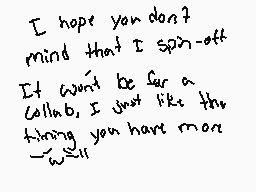 I hope you don't
mind that I spin-off
It won't be for a
collab, I just like the
timing you have more